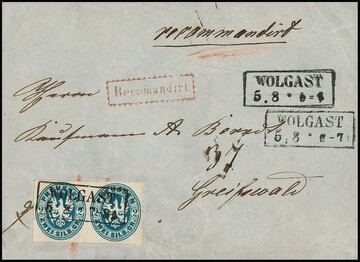 recommandirt
WOLGAST
5. 8 * 6-7
Recomandirt
Herrn
WOLGAST
5. 8 * 6-7
Kaufmann A
37
Greifswald
WOLGAST
ZWEI SILB. GR.
ZWEI SILB. GR.